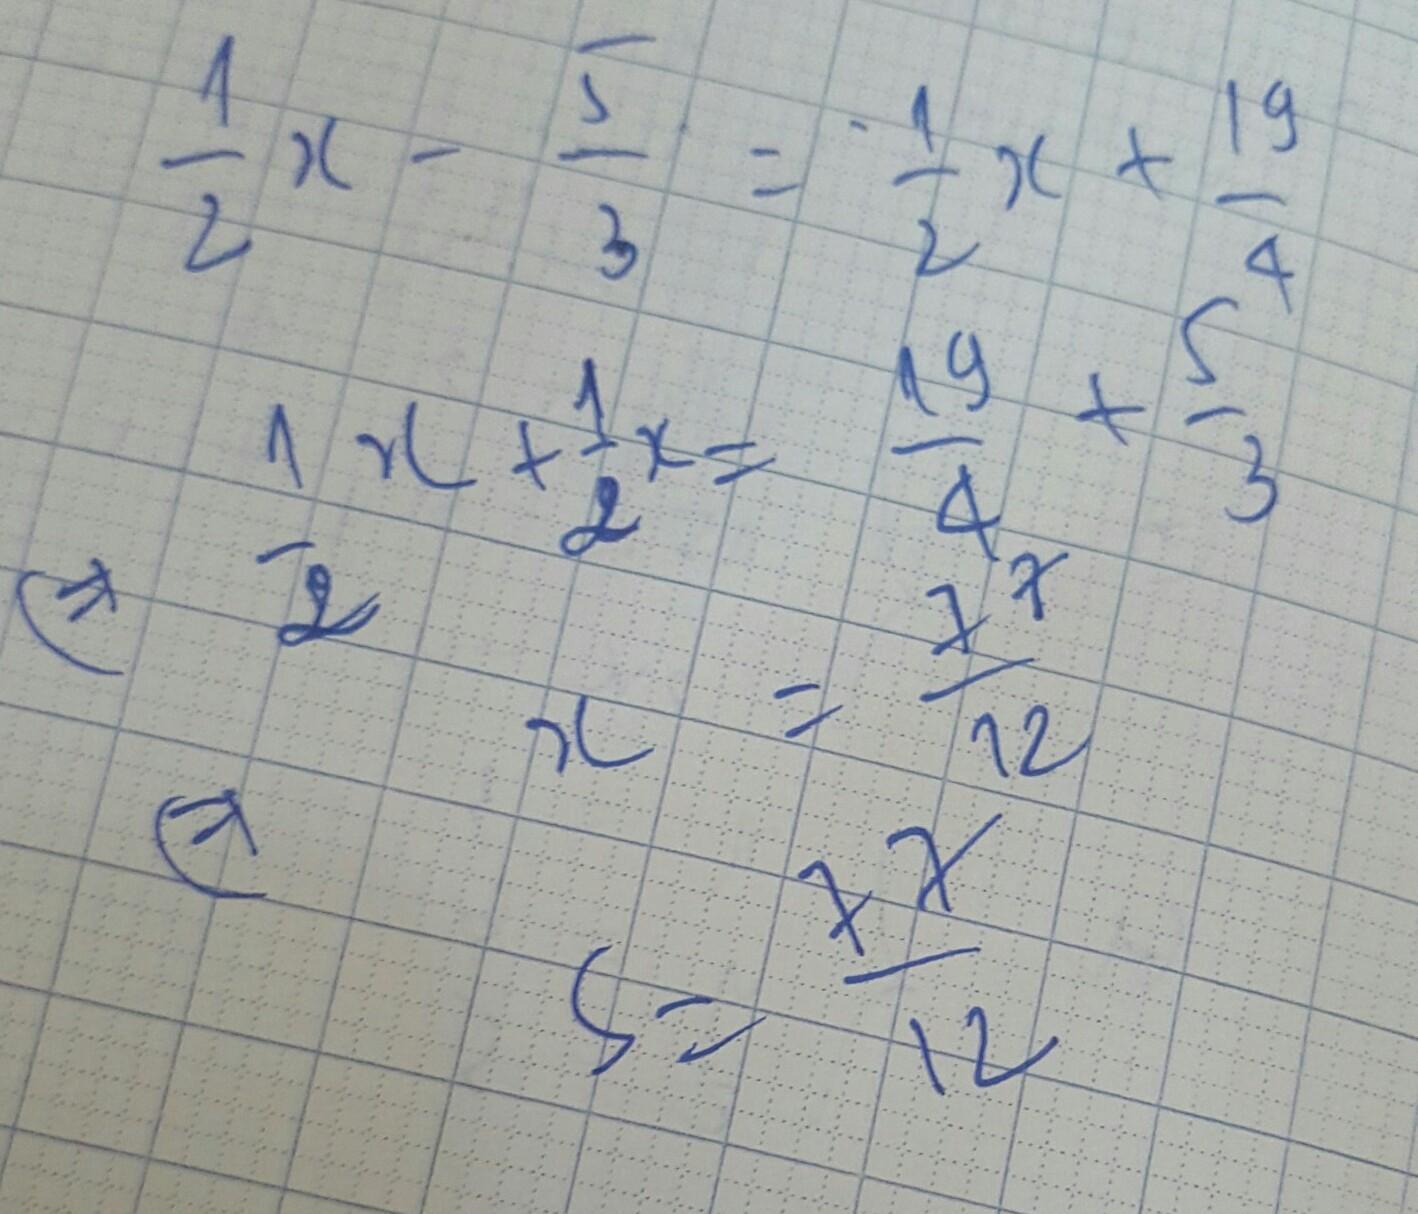 1/2 x - 5/3 = -1/2 x + 19/4
1/2 x + 1/2 x = 19/4 + 5/3
(=) x = 77/12
(=) S = 77/12